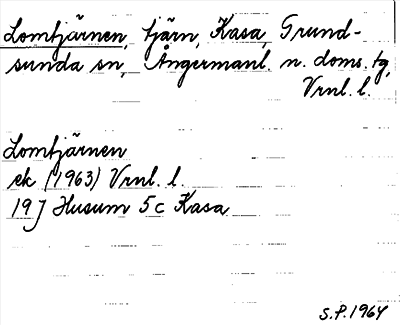 Lomtjärnen, tjärn, Kasa, Grund-
sunda sn, Ångermanl. n. doms. tg,
Vrnl. l.
Lomtjärnen
ek (1963) Vrnl. l.
19 J Husum 5c Kasa
S.P. 1964